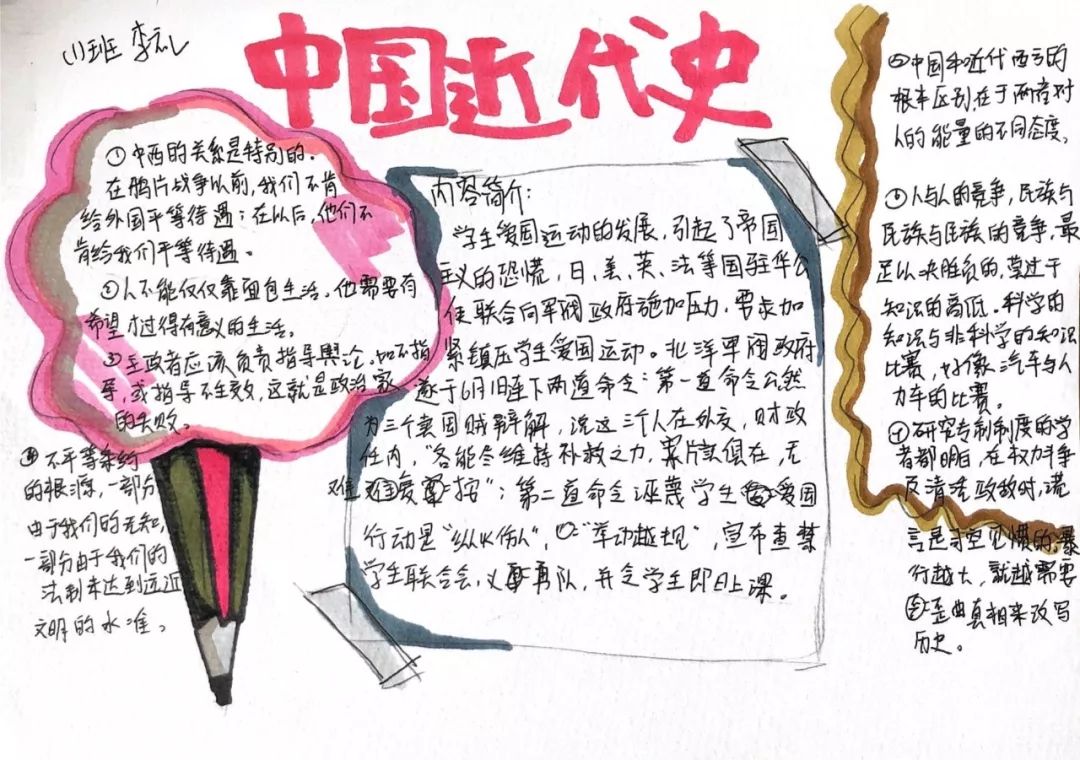 (1)班 李
中国近代史
①中西的关系是特别的.
在鸦片战争以前,我们不肯
给外国平等待遇;在以后,他们不
肯给我们平等待遇。
②人不能仅仅靠面包生活。他需要有
希望才过得有意义的生活。
③主政者应该负责指导舆论,如不指
导,或指导不生效,这就是政治家
的失败。
④不平等条约
的根源,一部分
由于我们的无知,
一部分由于我们的
法制未达到近
文明的水准。
内容简介:
学生爱国运动的发展,引起了帝国
主义的恐慌,日、美、英、法等国驻华公
使联合向军阀政府施加压力,要求加
紧镇压学生爱国运动。北洋军阀政府
遂于6月1日连下两道命令:第一道命令公然
为三个卖国贼辩解,说这三个人在外交,财政
任内,“各能尽维持补救之力,案款俱在,无
难 按”;第二道命令诬蔑学生爱国
行动是“纵火伤人”,“举动越规”,宣布查禁
学生联合会,义勇队,并令学生即日上课。
②中国和近代西方的
根本区别在于两者对
人的能量的不同态度,
③人与人的竞争,民族与
民族与民族的竞争,最
足以决胜负的,莫过于
知识的高低。科学的
知识与非科学的知识
比赛,好像汽车与人
力车的比赛。
④研究专制制度的学
者都明白,在权力斗争
及清洗政敌时,谎
言是司空见惯的,暴
行越大,就越需要
歪曲真相来改写
历史。